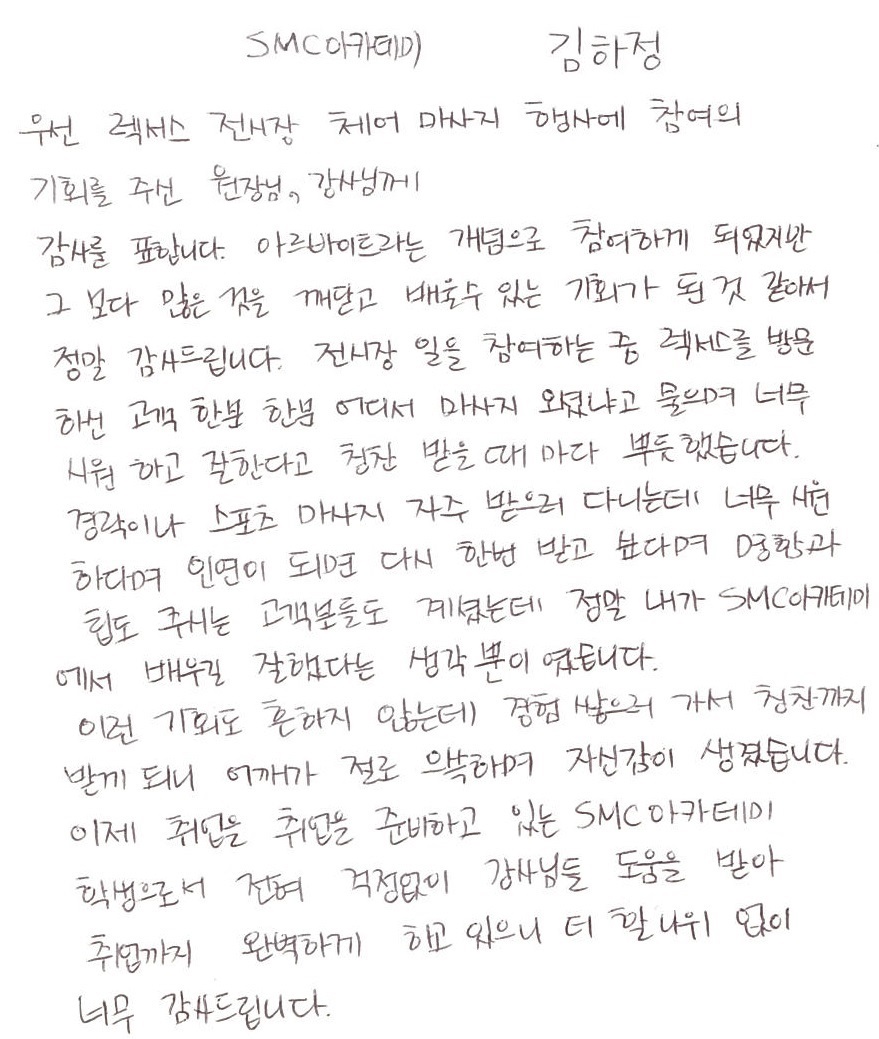 SMC아카데미 김하정
우선 렉서스 전시장 체어 마사지 행사에 참여의
기회를 주신 원장님, 강사님께
감사를 표합니다. 아르바이트라는 개념으로 참여하게 되었지만
그 보다 많은 것을 깨닫고 배울수 있는 기회가 된 것 같아서
정말 감사드립니다. 전시장 일을 참여하는 중 렉서스를 방문
하신 고객 한분 한분 어디서 마사지 오셨냐고 물으며 너무
시원 하고 잘한다고 칭찬 받을 때 마다 뿌듯했습니다.
경락이나 스포츠 마사지 자주 받으러 다니는데 너무 시원
하다며 인연이 되면 다시 한번 받고 싶다며 명함과
팁도 주시는 고객분들도 계셨는데 정말 내가 SMC아카데미
에서 배우길 잘했다는 생각 뿐이 였습니다.
이런 기회도 흔하지 않는데 경험 쌓으러 가서 칭찬까지
받게 되니 어깨가 절로 으쓱하며 자신감이 생겼습니다.
이제 취업을 취업을 준비하고 있는 SMC아카데미
학생으로서 전혀 걱정없이 강사님들 도움을 받아
취업까지 완벽하게 하고 있으니 더 할 나위 없이
너무 감사드립니다.